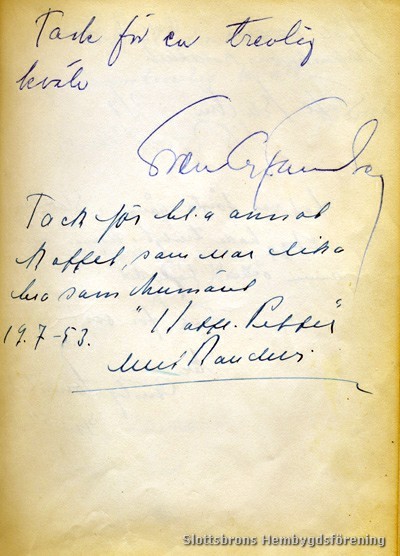 Tack för en trevlig
kväll
Tack för bl.a annat
kaffet, som var lika
bra som humöret
19.7-53.
Slottsbrons Hembygdsförening